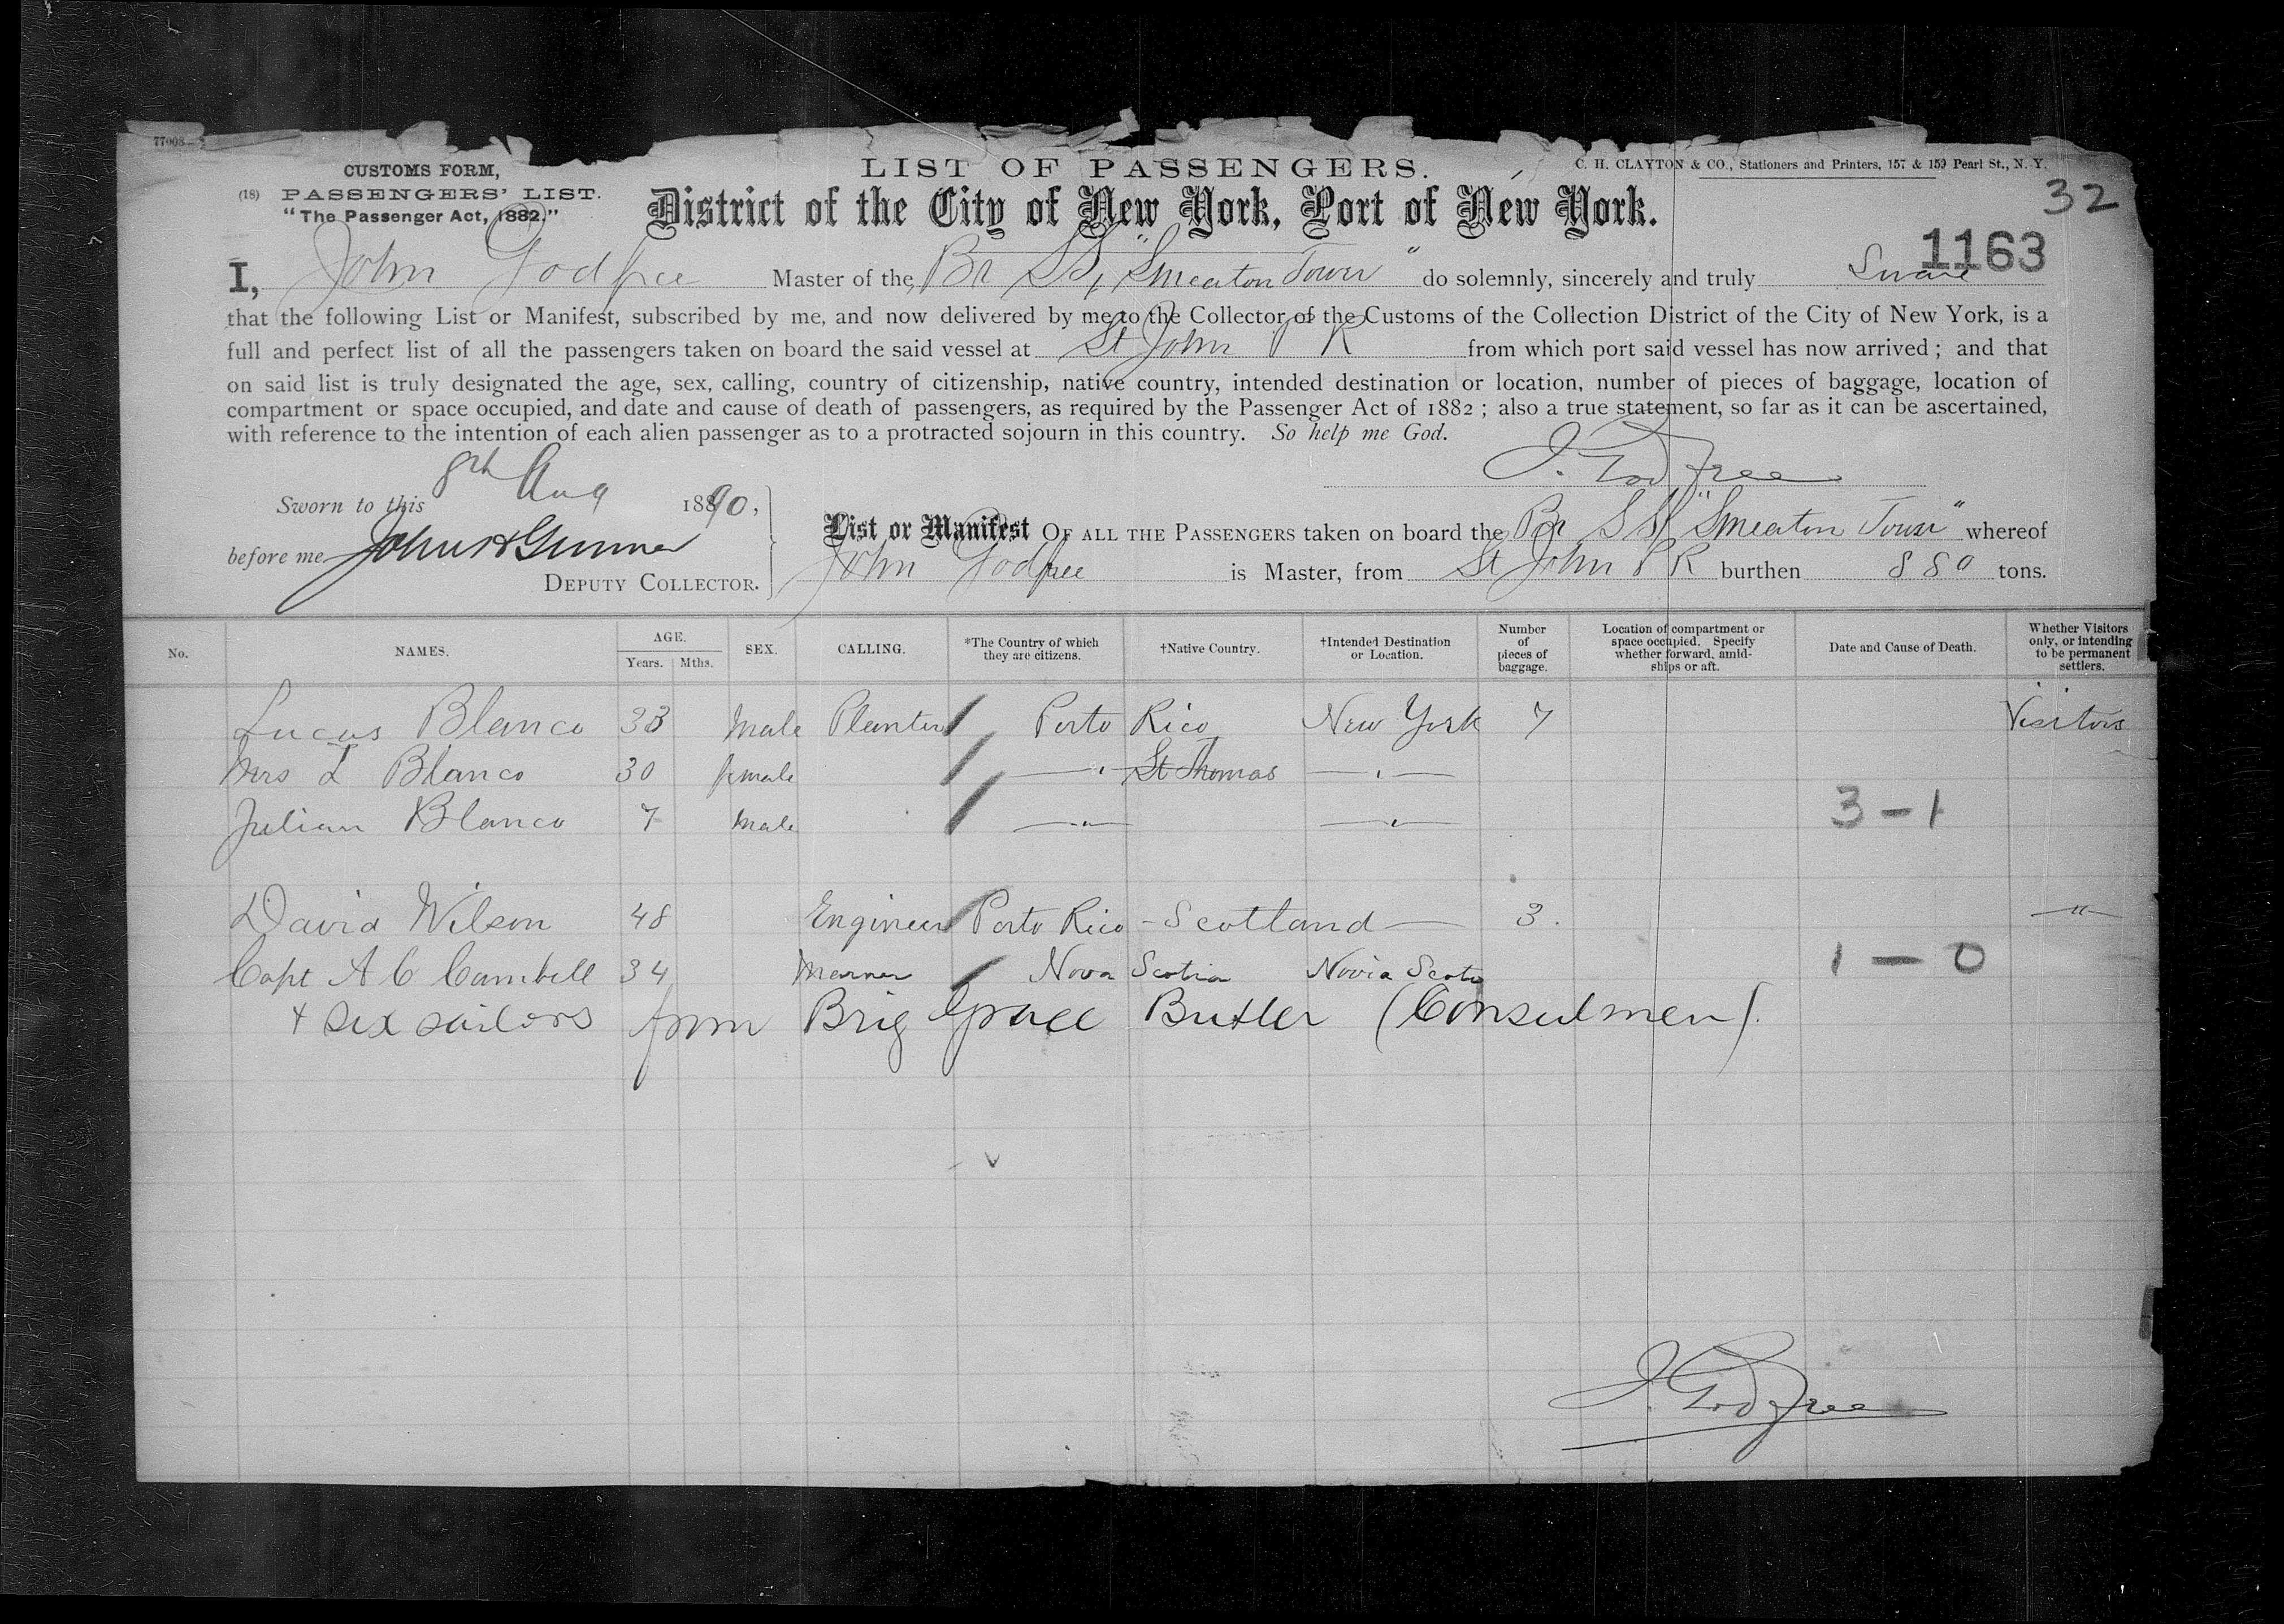 77008
CUSTOMS FORM,
(18) PASSENGERS' LIST.
"The Passenger Act, 1882."
LIST OF PASSENGERS.
C. H. CLAYTON & CO., Stationers and Printers, 157 & 159 Pearl St., N. Y.
District of the City of New York, Port of New York.
32
1163
I, John Godfree Master of the Br SS, "Smeaton Tower" do solemnly, sincerely and truly Swear
that the following List or Manifest, subscribed by me, and now delivered by me to the Collector of the Customs of the Collection District of the City of New York, is a
full and perfect list of all the passengers taken on board the said vessel at St John P R from which port said vessel has now arrived; and that
on said list is truly designated the age, sex, calling, country of citizenship, native country, intended destination or location, number of pieces of baggage, location of
compartment or space occupied, and date and cause of death of passengers, as required by the Passenger Act of 1882; also a true statement, so far as it can be ascertained,
with reference to the intention of each alien passenger as to a protracted sojourn in this country. So help me God.
J. Godfree
Sworn to this 8th Aug 1890,
before me John H Gunner
DEPUTY COLLECTOR.
List or Manifest OF ALL THE PASSENGERS taken on board the Br SS "Smeaton Tower" whereof
John Godfree is Master, from St John P R burthen 880 tons.
No. NAMES. AGE. Years. Mths. SEX. CALLING. *The Country of which they are citizens. †Native Country. †Intended Destination or Location. Number of pieces of baggage. Location of compartment or space occupied. Specify whether forward, amidships or aft. Date and Cause of Death. Whether Visitors only, or intending to be permanent settlers.
Lucas Blanco 33 Male Planter Porto Rico New York 7 Visitors
Mrs L Blanco 30 female — " — St Thomas — " —
Julian Blanco 7 Male — " — — " — 3 - 1
David Wilson 48 Engineer Porto Rico - Scotland — 3. — " —
Capt A C Cambell 34 Marner Nova Scotia Novia Scota 1 — 0
+ six sailors from Brig Grace Butler (Consulmen).
J. Godfree